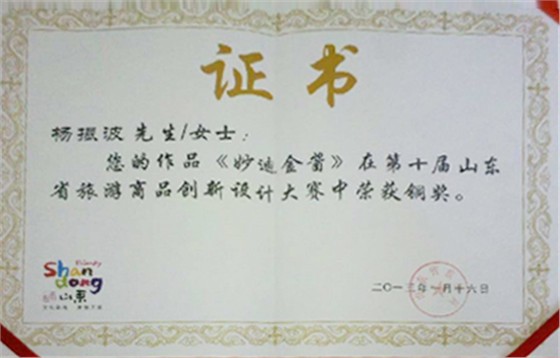 证书
杨振波先生/女士：
您的作品《妙迪金酱》在第十届山东
省旅游商品创新设计大赛中荣获铜奖。
Friendly
Shan
dong
好客山东
二〇一三年一月十六日